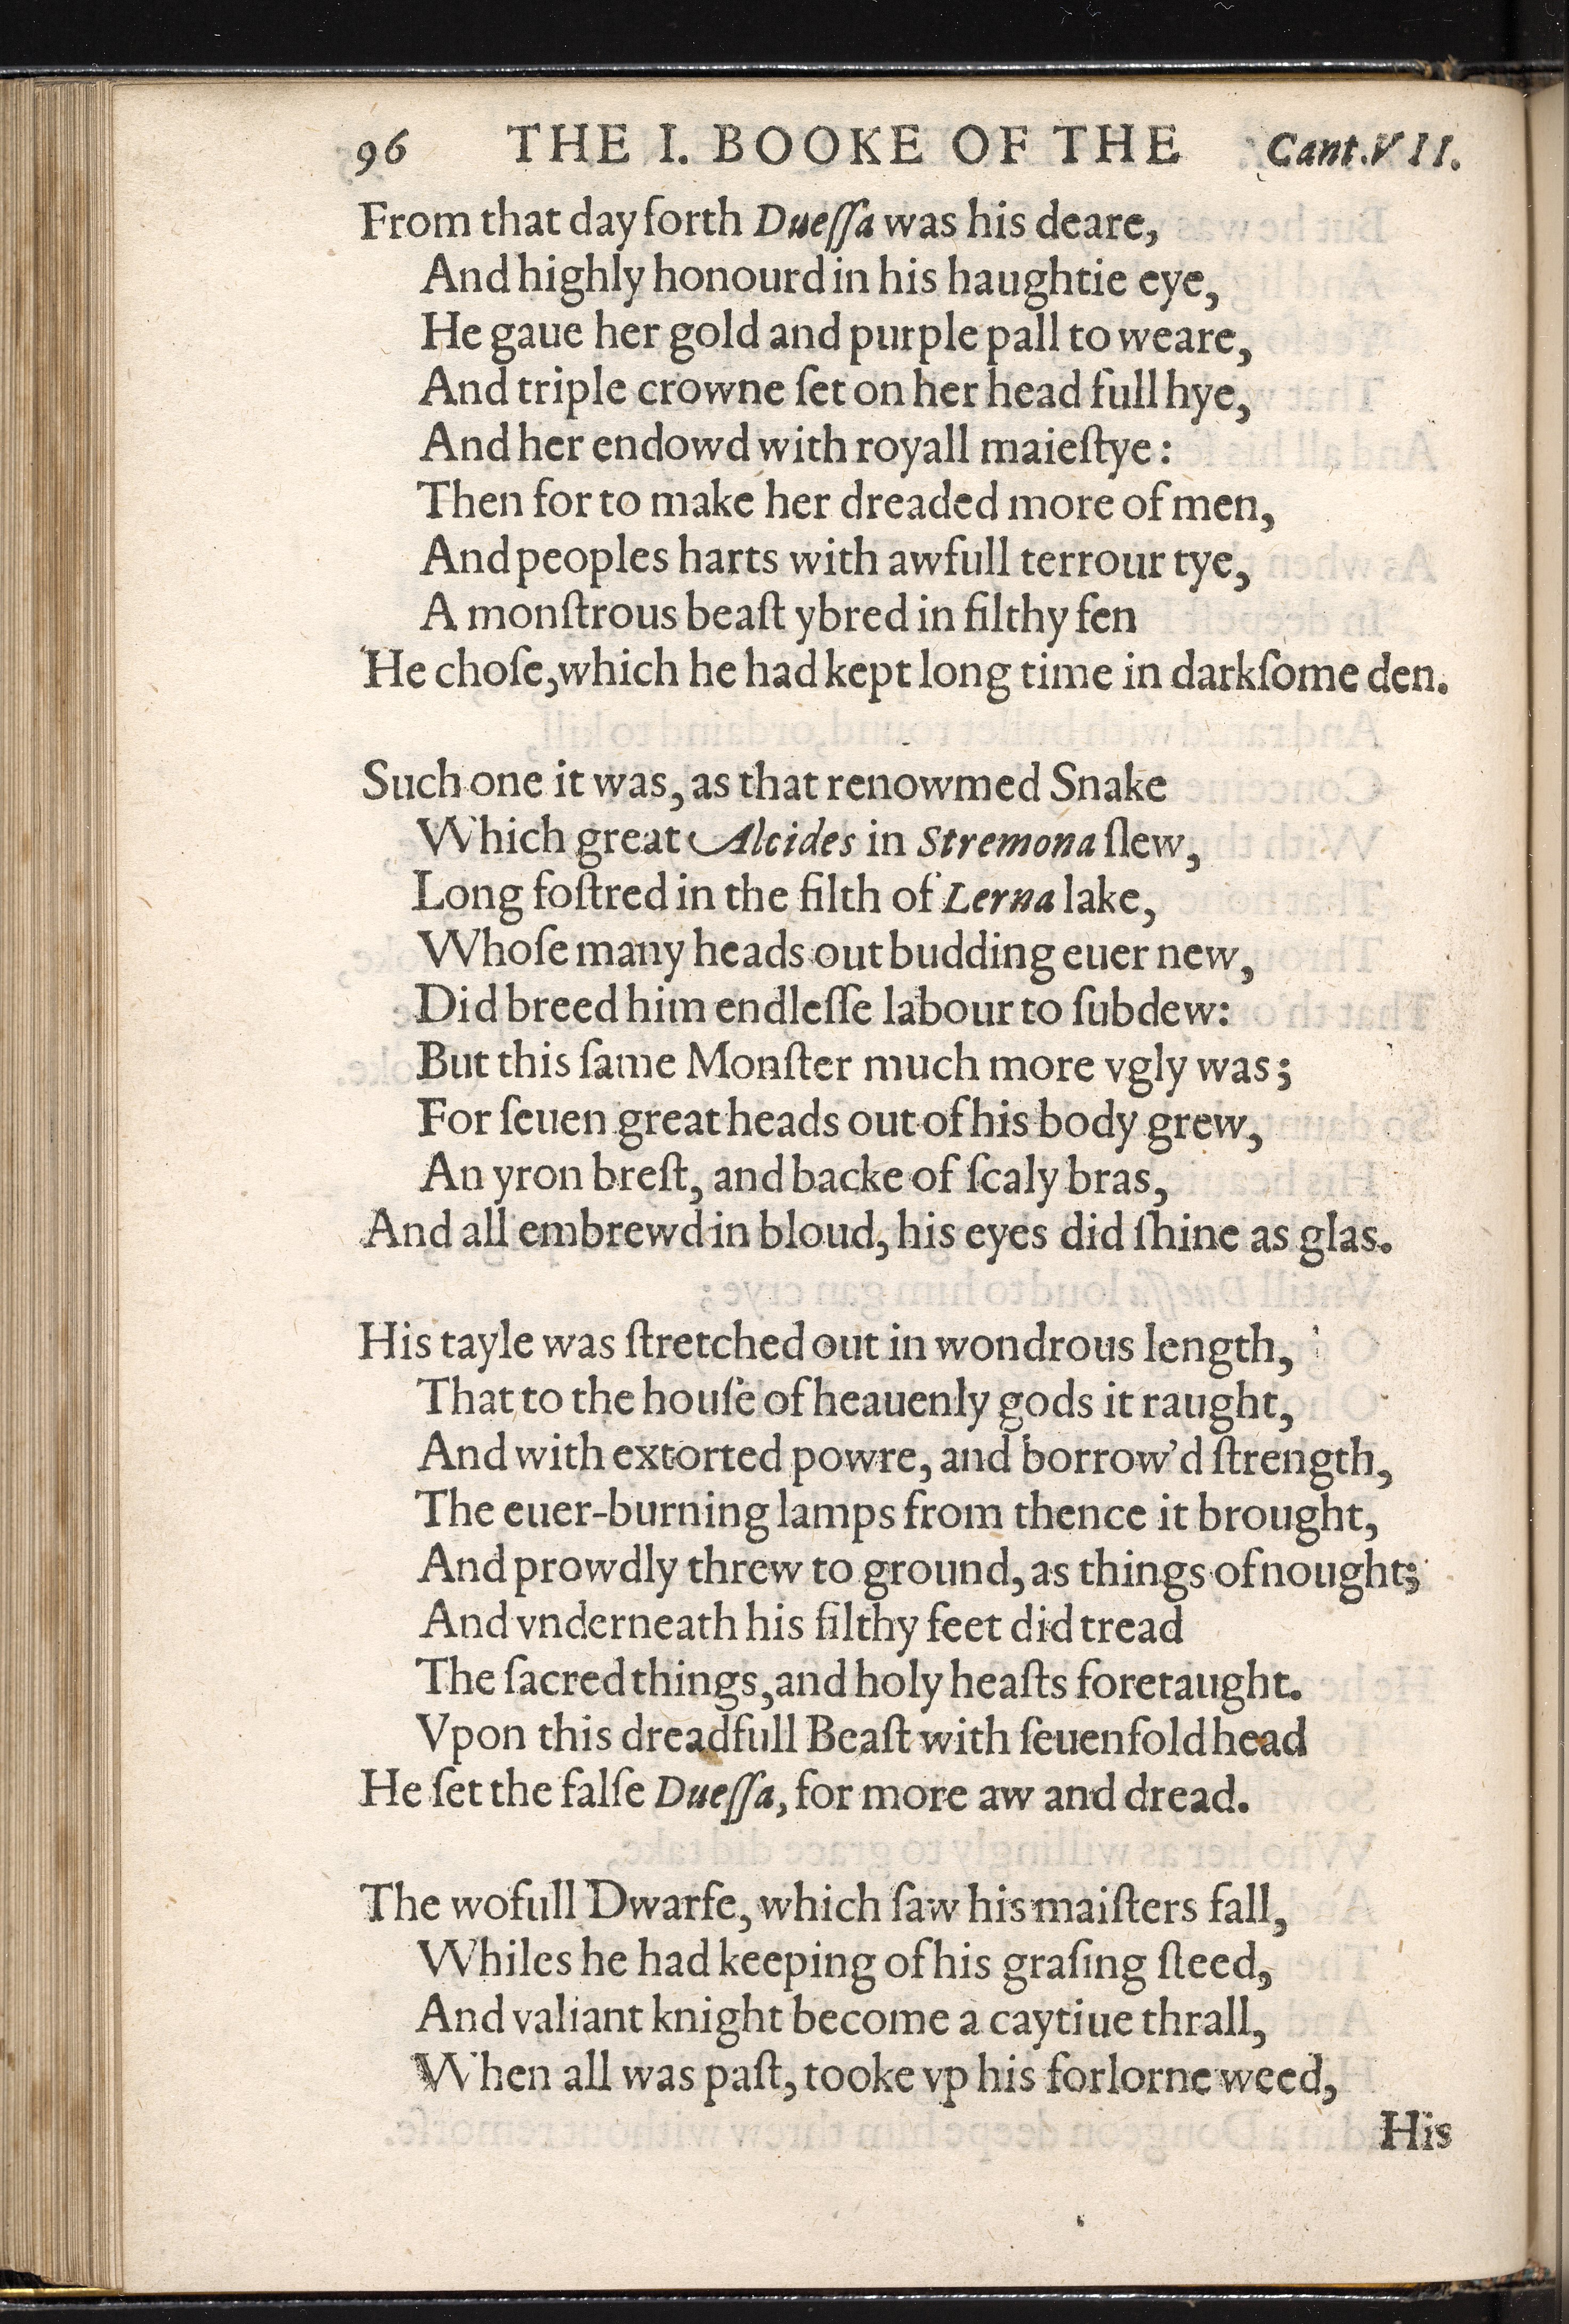 96 THE I. BOOKE OF THE Cant.VII.
From that day forth Dueſſa was his deare,
And highly honourd in his haughtie eye,
He gaue her gold and purple pall to weare,
And triple crowne ſet on her head full hye,
And her endowd with royall maieſtye:
Then for to make her dreaded more of men,
And peoples harts with awfull terrour tye,
A monſtrous beaſt ybred in filthy fen
He choſe, which he had kept long time in darkſome den.
Such one it was, as that renowmed Snake
Which great Alcides in Stremona ſlew,
Long foſtred in the filth of Lerna lake,
Whoſe many heads out budding euer new,
Did breed him endleſſe labour to ſubdew:
But this ſame Monſter much more vgly was;
For ſeuen great heads out of his body grew,
An yron breſt, and backe of ſcaly bras,
And all embrewd in bloud, his eyes did ſhine as glas.
His tayle was ſtretched out in wondrous length,
That to the houſe of heauenly gods it raught,
And with extorted powre, and borrow'd ſtrength,
The euer-burning lamps from thence it brought,
And prowdly threw to ground, as things of nought;
And vnderneath his filthy feet did tread
The ſacred things, and holy heaſts foretaught.
Vpon this dreadfull Beaſt with ſeuenfold head
He ſet the falſe Dueſſa, for more aw and dread.
The wofull Dwarfe, which ſaw his maiſters fall,
Whiles he had keeping of his graſing ſteed,
And valiant knight become a caytiue thrall,
When all was paſt, tooke vp his forlorne weed,
His